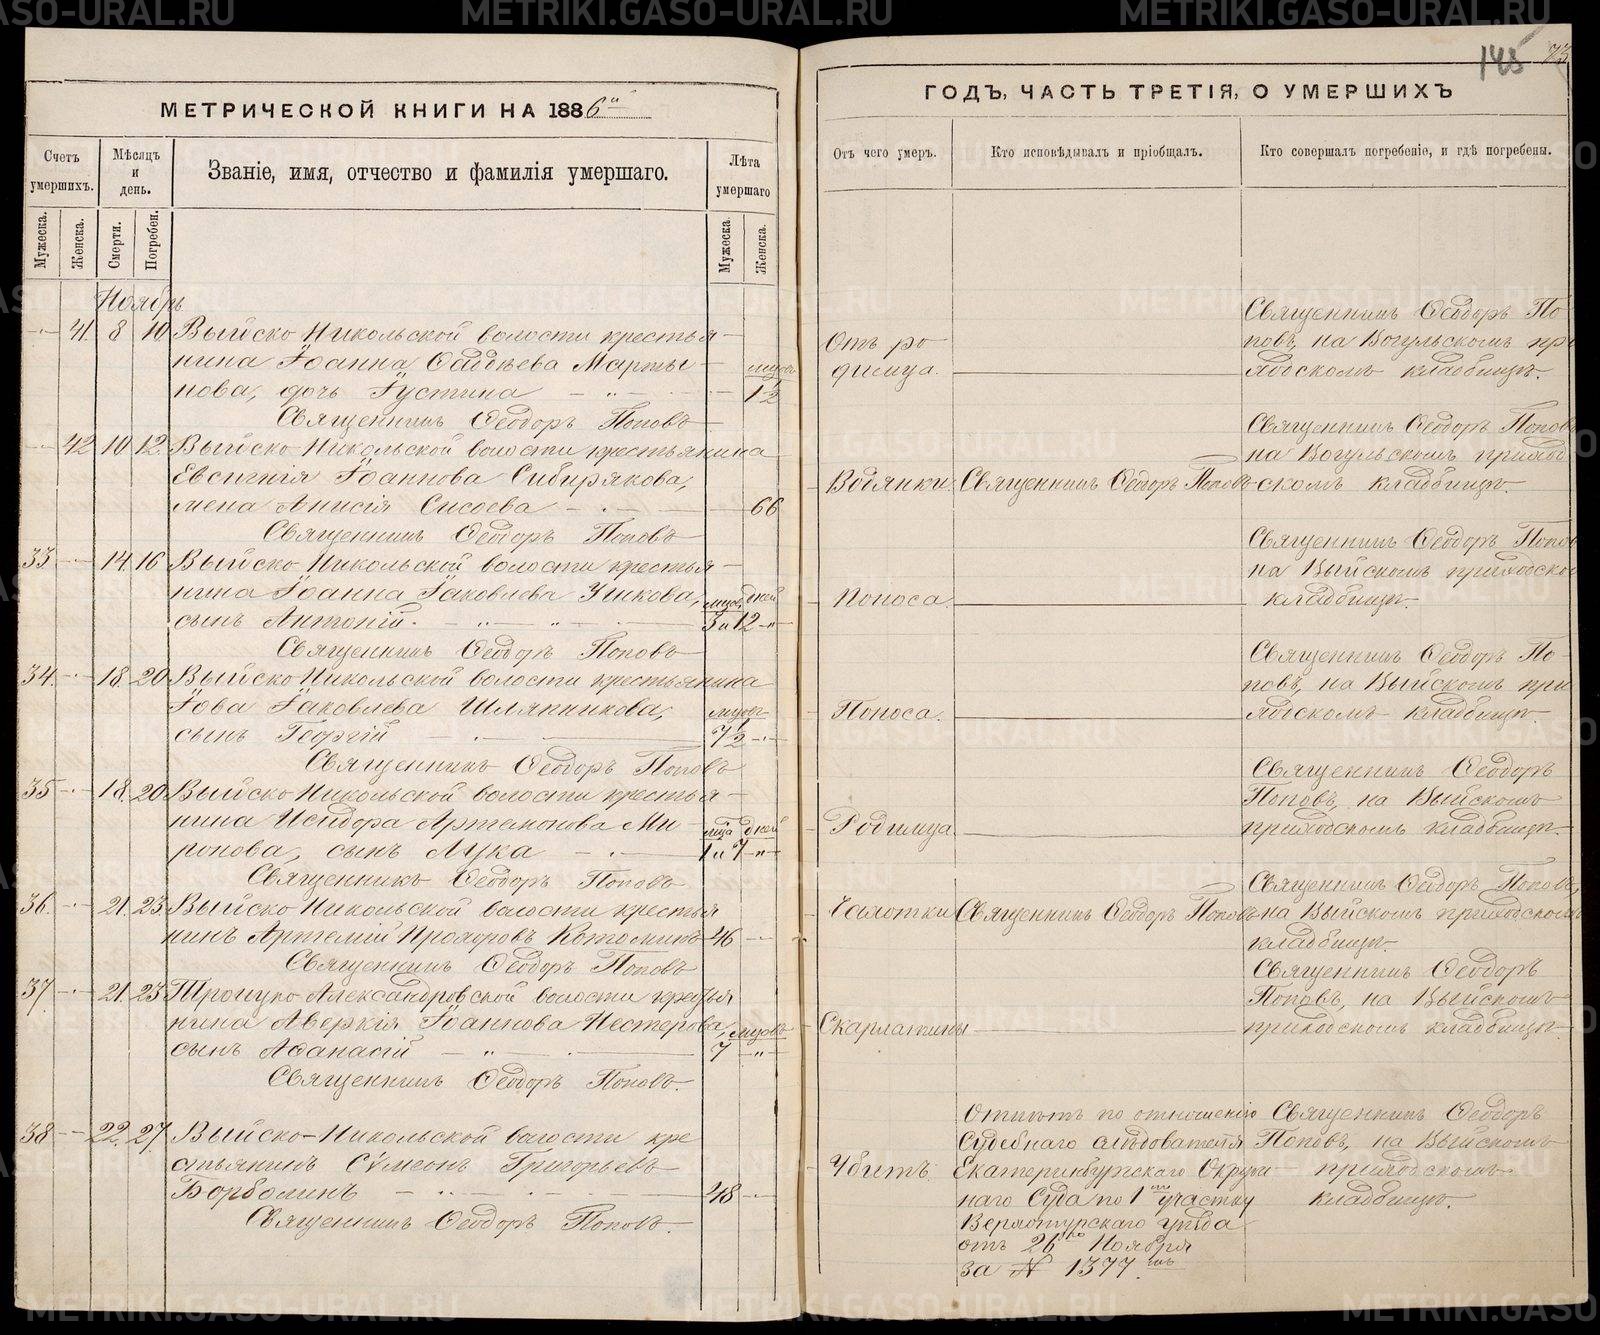 МЕТРИЧЕСКОЙ КНИГИ НА 1886й
Счетъ умершихъ.
Мѣсяцъ и день.
Званіе, имя, отчество и фамилія умершаго.
Лѣта умершаго
Мужеска.
Женска.
Смерти.
Погребен.
Мужеска.
Женска.
Ноябрь
41. 8 10 Выйско Никольской волости крестья-
нина Іоанна Фаддѣева Марты-
нова, дочь Іустина
1½
Священникъ Ѳеодоръ Поповъ
42 10 12. Выйско Никольской волости крестьянина
Евсигнія Іоаннова Сибирякова,
жена Анисія Сисоева 66
Священникъ Ѳеодоръ Поповъ
33 14. 16 Выйско Никольской волости крестья-
нина Іоанна Іаковлева Ушкова, дней
сынъ Антоній. 3 и 12
Священникъ Ѳеодоръ Поповъ
34. 18. 20 Выйско Никольской волости крестьянина
Іова Іаковлева Шляпникова,
сынъ Георгій 7½
Священникъ Ѳеодоръ Поповъ
35 18. 20 Выйско Никольской волости крестья-
нина Исидора Артемонова Ми- дней
ронова, сынъ Лука 1 и 7
Священникъ Ѳеодоръ Поповъ
36. 21. 23 Выйско Никольской волости крестья
нинъ Артемій Котоминъ 46
Священникъ Ѳеодоръ Поповъ
37 21. 23 Троицко Александровской волости крестья
нина Аверкія Іоаннова Нестерова,
сынъ Аѳанасій 7
Священникъ Ѳеодоръ Поповъ.
38 22. 27. Выйско-Никольской волости кре
стьянинъ Сѵмеонъ Григорьевъ
Борболинъ 48
Священникъ Ѳеодоръ Поповъ.
145 73
ГОДЪ, ЧАСТЬ ТРЕТІЯ, О УМЕРШИХЪ
Отъ чего умеръ.
Кто исповѣдывалъ и пріобщалъ.
Кто совершалъ погребеніе, и гдѣ погребены.
Отъ ро
димца.
Священникъ Ѳеодоръ По-
повъ, на Вогульскомъ при
ходскомъ кладбищѣ.
Водянки. Священникъ Ѳеодоръ Поповъ
Священникъ Ѳеодоръ Поповъ
на Вогульскомъ приход
скомъ кладбищѣ.
Поноса.
Священникъ Ѳеодоръ Поповъ
на Выйскомъ приходско
кладбищѣ.
Поноса.
Священникъ Ѳеодоръ По-
повъ, на Выйскомъ при
ходскомъ кладбищѣ.
Родимца.
Священникъ Ѳеодоръ
Поповъ, на Выйскомъ
приходскомъ кладбищѣ.
Чахотки Священникъ Ѳеодоръ Поповъ
Священникъ Ѳеодоръ Поповъ,
на Выйскомъ приходскомъ
кладбищѣ
Скарлатины
Священникъ Ѳеодоръ
Поповъ, на Выйскомъ
приходскомъ кладбищѣ.
Убитъ.
Отпѣтъ по отношенію
Судебнаго слѣдователя
Екатеринбургскаго Окруж
наго Суда по 1му участку
Верхотурскаго уѣзда
отъ 26го Ноября
за № 1377.мъ
Священникъ Ѳеодоръ
Поповъ, на Выйскомъ
приходскомъ
кладбищѣ.
METRIKI.GASO-URAL.RU